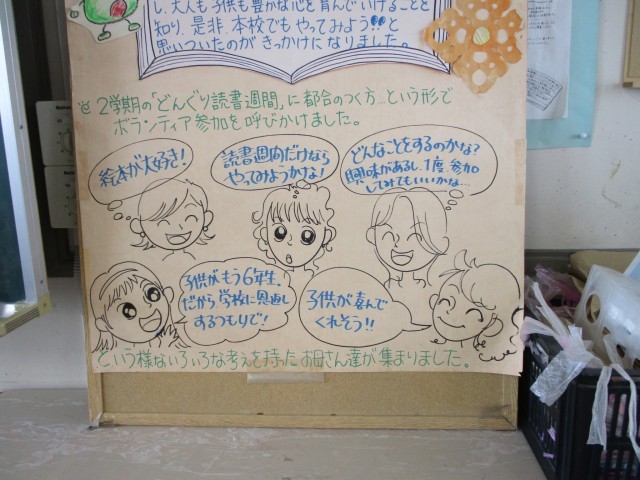 し、大人も子供も豊かな心を育んでいけることを
知り、是非、本校でもやってみよう!!と
思いついたのがきっかけになりました。
2学期の「どんぐり読書週間」に都合のつく方…という形で
ボランティア参加を呼びかけました。
絵本が大好き!
読書週間だけなら
やってみようかな!
どんなことをするのかな?
興味があるし、1度、参加
してみてもいいかな…
子供がもう6年生。
だから学校に恩返し
するつもりで!
子供が喜んで
くれそう!!
という様ないろいろな考えを持ったお母さん達が集まりました。